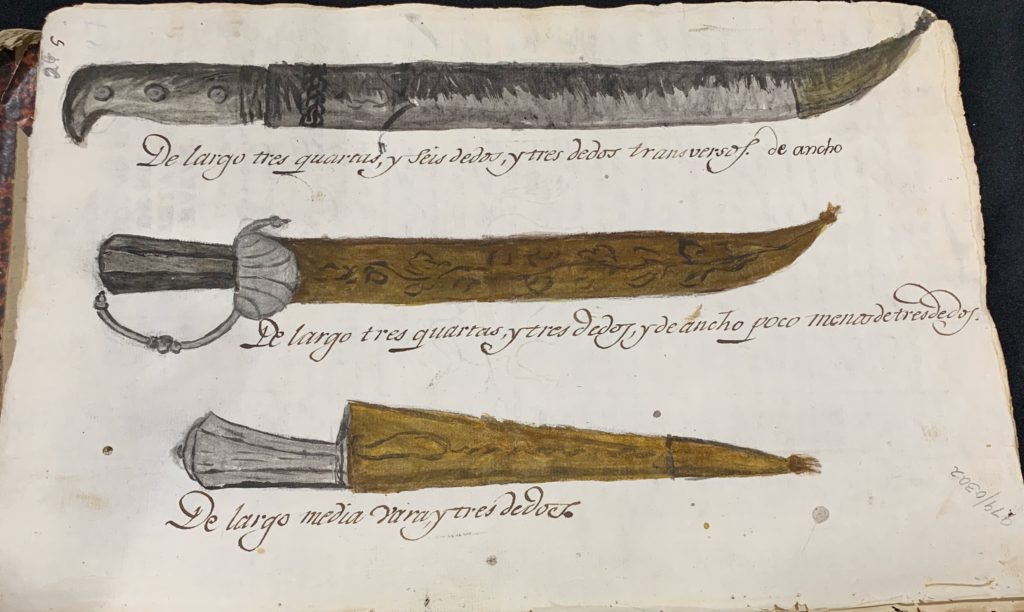 24 5
De largo tres quartas, y seis dedos, y tres dedos transversos. de ancho
De largo tres quartas, y tres dedos, y de ancho poco menos de tres dedos.
De largo media vara, y tres dedos.
979/0302